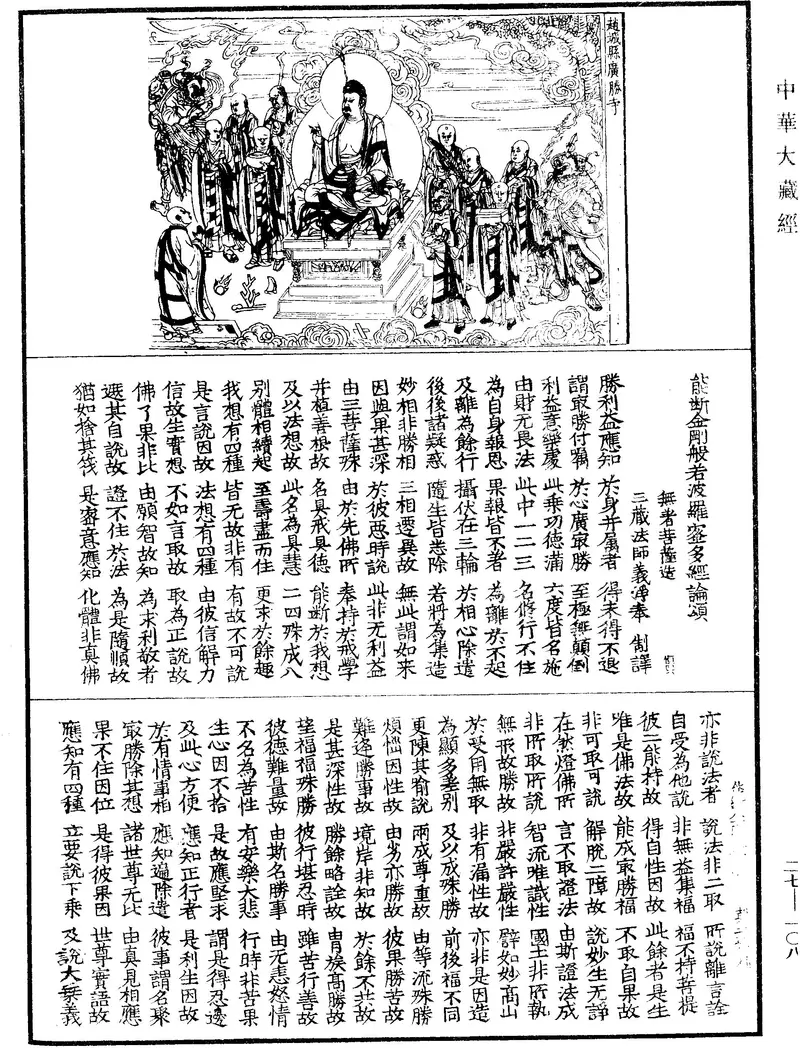 中華大藏經
趙城縣廣勝寺
能斷金剛般若波羅蜜多經論頌
無著菩薩造
三藏法師義淨奉 制譯
勝利益應知 於身并屬者 得未得不退
謂最勝付囑 於心廣最勝 至極無顛倒
利益意樂處 此乘功德滿 六度皆名施
由財无畏法 此中一二三 名修行不住
為自身報恩 果報皆不著 為離於不起
及離為餘行 攝伏在三輪 於相心除遣
後後諸疑惑 隨生皆悉除 若將為集造
妙相非勝相 三相遷異故 無此謂如来
因與果甚深 於彼惡時說 此非无利益
由三菩薩殊 由於先佛所 奉持於戒學
并植善根故 名具戒具德 能斷於我想
及以法想故 此名為具慧 二四殊成八
別體相續起 至壽盡而住 更求於餘趣
我想有四種 皆无故非有 有故不可說
是言說因故 法想有四種 由彼信解力
信故生實想 不如言取故 取為正說故
佛了果非比 由願智故知 為求利敬者
遮其自說故 證不住於法 為是隨順故
猶如捨其筏 是密意應知 化體非真佛
亦非說法者 說法非二取 所說離言詮
自受為他說 非無益集福 福不持菩提
彼二能持故 得自性因故 此餘者是生
唯是佛法故 能成最勝福 不取自果故
非可取可說 解脫二障故 說妙生无諍
在然燈佛所 言不取證法 由斯證法成
非所取所說 智流唯識性 國土非所執
無形故勝故 非嚴許嚴性 譬如妙高山
於受用無取 非有漏性故 亦非是因造
為顯多差別 及以成殊勝 前後福不同
更陳其喻說 兩成尊重故 由等流殊勝
煩惱因性故 由劣亦勝故 彼果勝苦故
難逢勝事故 境岸非知故 於餘不共故
是甚深性故 勝餘略詮故 胄族高勝故
望福福殊勝 彼行堪忍時 雖苦行善故
彼德難量故 由斯名勝事 由无恚怒情
不名為苦性 有安樂大悲 行時非苦果
生心因不捨 是故應堅求 謂是得忍邊
及此心方便 應知正行者 是利生因故
於有情事相 應知遍除遣 彼事謂名聚
最勝除其想 諸世尊无比 由真見相應
果不住因位 是得彼果因 世尊實語故
應知有四種 立要說下乘 及說大乘義
二七—一〇八